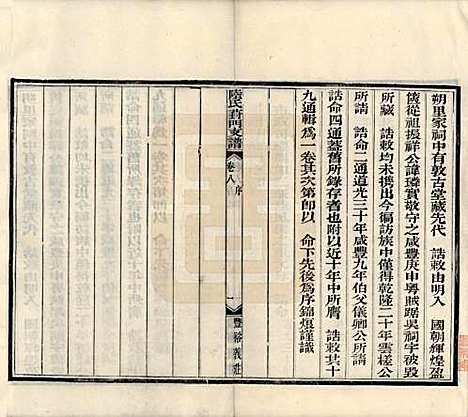 朔里家祠中有敦古堂藏先代　誥敕由明入　國朝輝煌盈
篋從祖振祥公諱璘實敬守之咸豐庚申粤賊踞吳祠宇被毁
所藏　誥敕均未攜出今徧訪族中僅得乾隆二十年雲樣公
所請　誥命二通道光三十年咸豐九年伯父儀卿公所請
誥命四通蓋舊所錄存者也附以近十年中所膺　誥敕其十
九通輯爲一卷其次第卽以　命下先後爲序錦烺謹識
陸氏葑門支譜
卷八 序
一
豐裕義莊